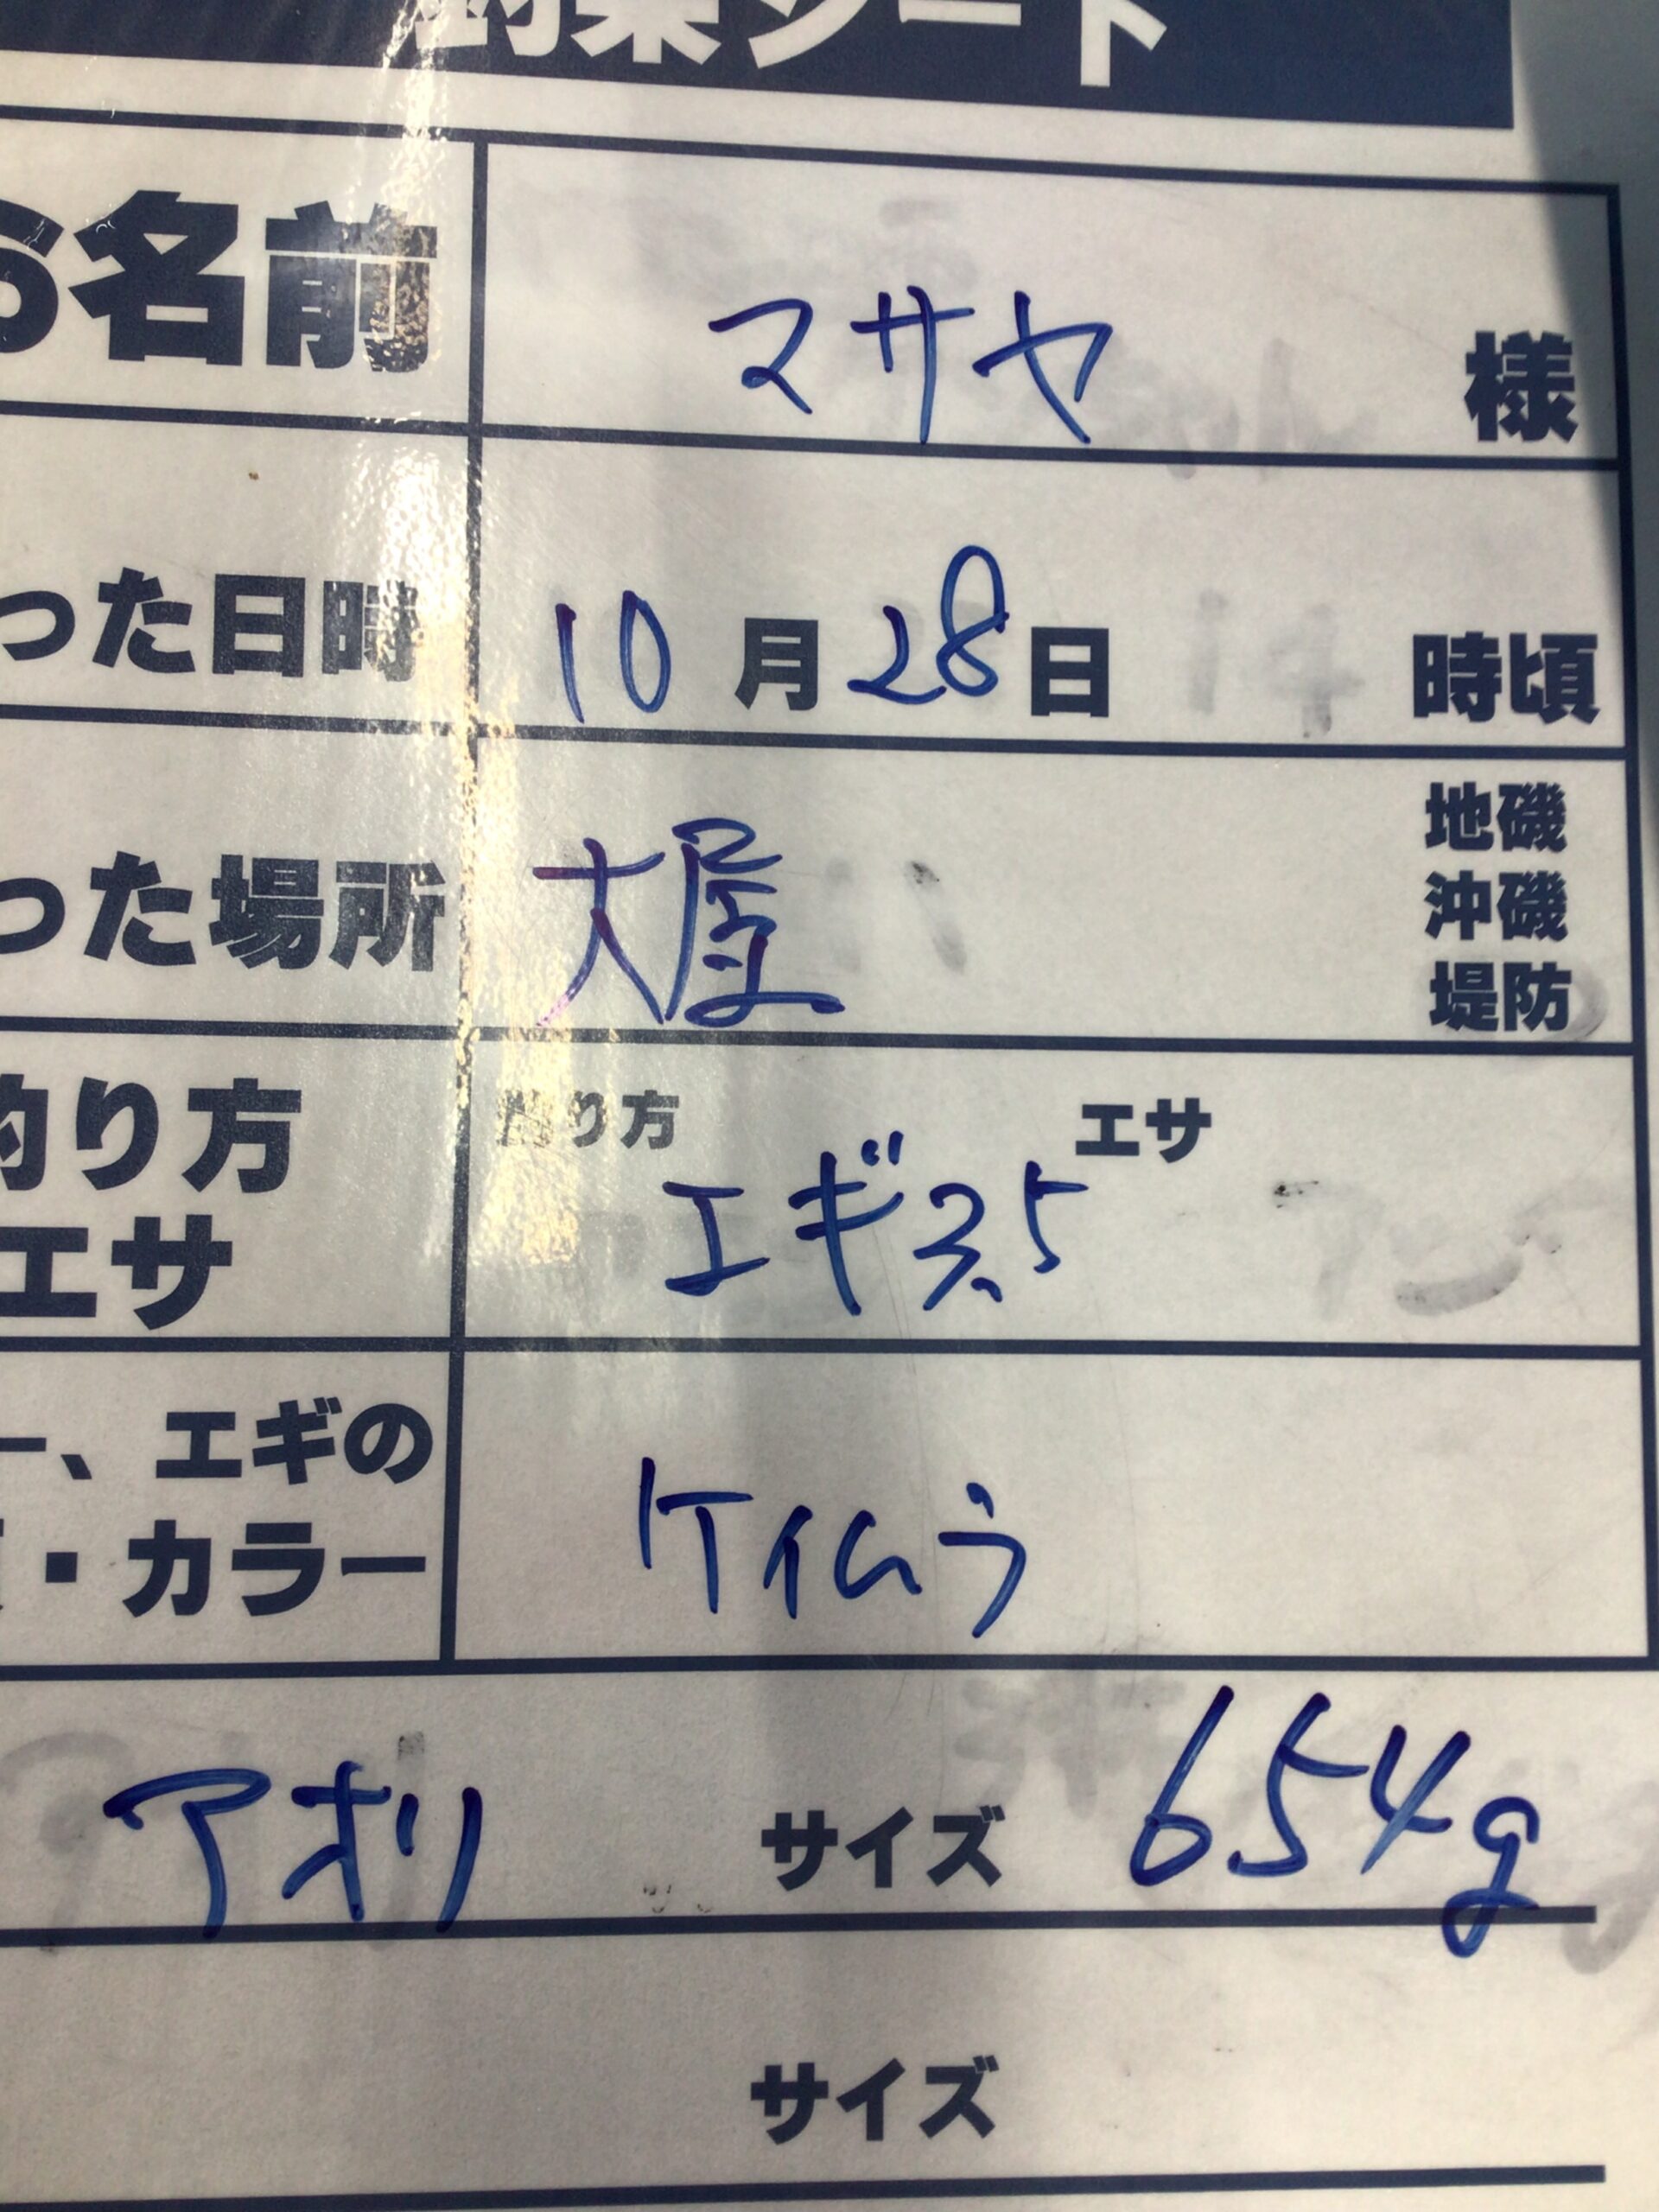 釣果シート
お名前 マサヤ 様
った日時 10月28日 時頃
地磯
った場所 大屋 沖磯
堤防
釣り方 エサ
釣り方 エギ3.5
エサ
ー、エギの
ケイムラ
・カラー
アオリ サイズ 654g
サイズ